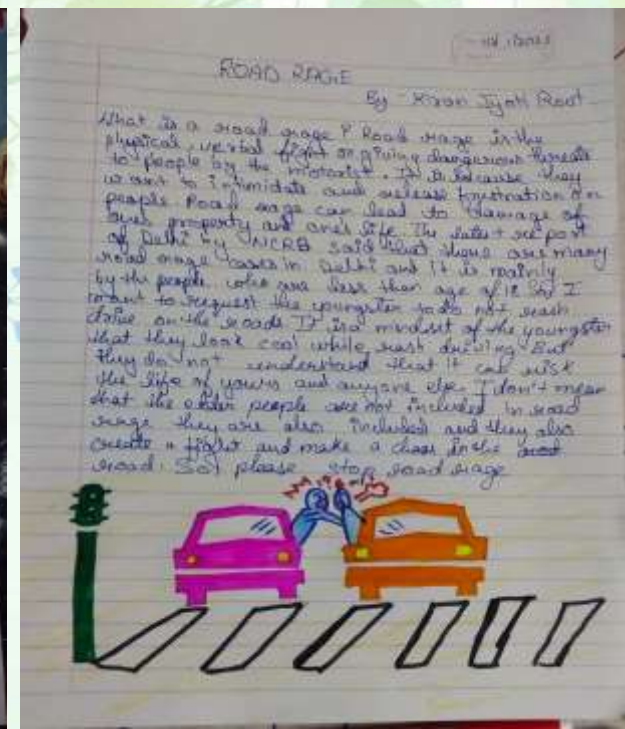 ROAD RAGE
By Kiran Jyoti Raot
What is a road rage? Road rage is the
physical, verbal fight or giving dangerous threats
to people by the motorist. It is because they
want to intimidate and release frustration on
people. Road rage can lead to damage of
ones property and one's life. The latest report
of Delhi by NCRB said that there are many
road rage cases in Delhi and it is mainly
by the people who are less than age of 18. So I
want to request the youngster to do not rash
drive on the roads It is a mindset of the youngster
that they look cool while rash driving. But
they do not understand that it can risk
the life of yours and anyone else. I don't mean
that the elder people are not included in road
rage they are also included and they also
create a fight and make a chaos in the
road. So, please stop road rage